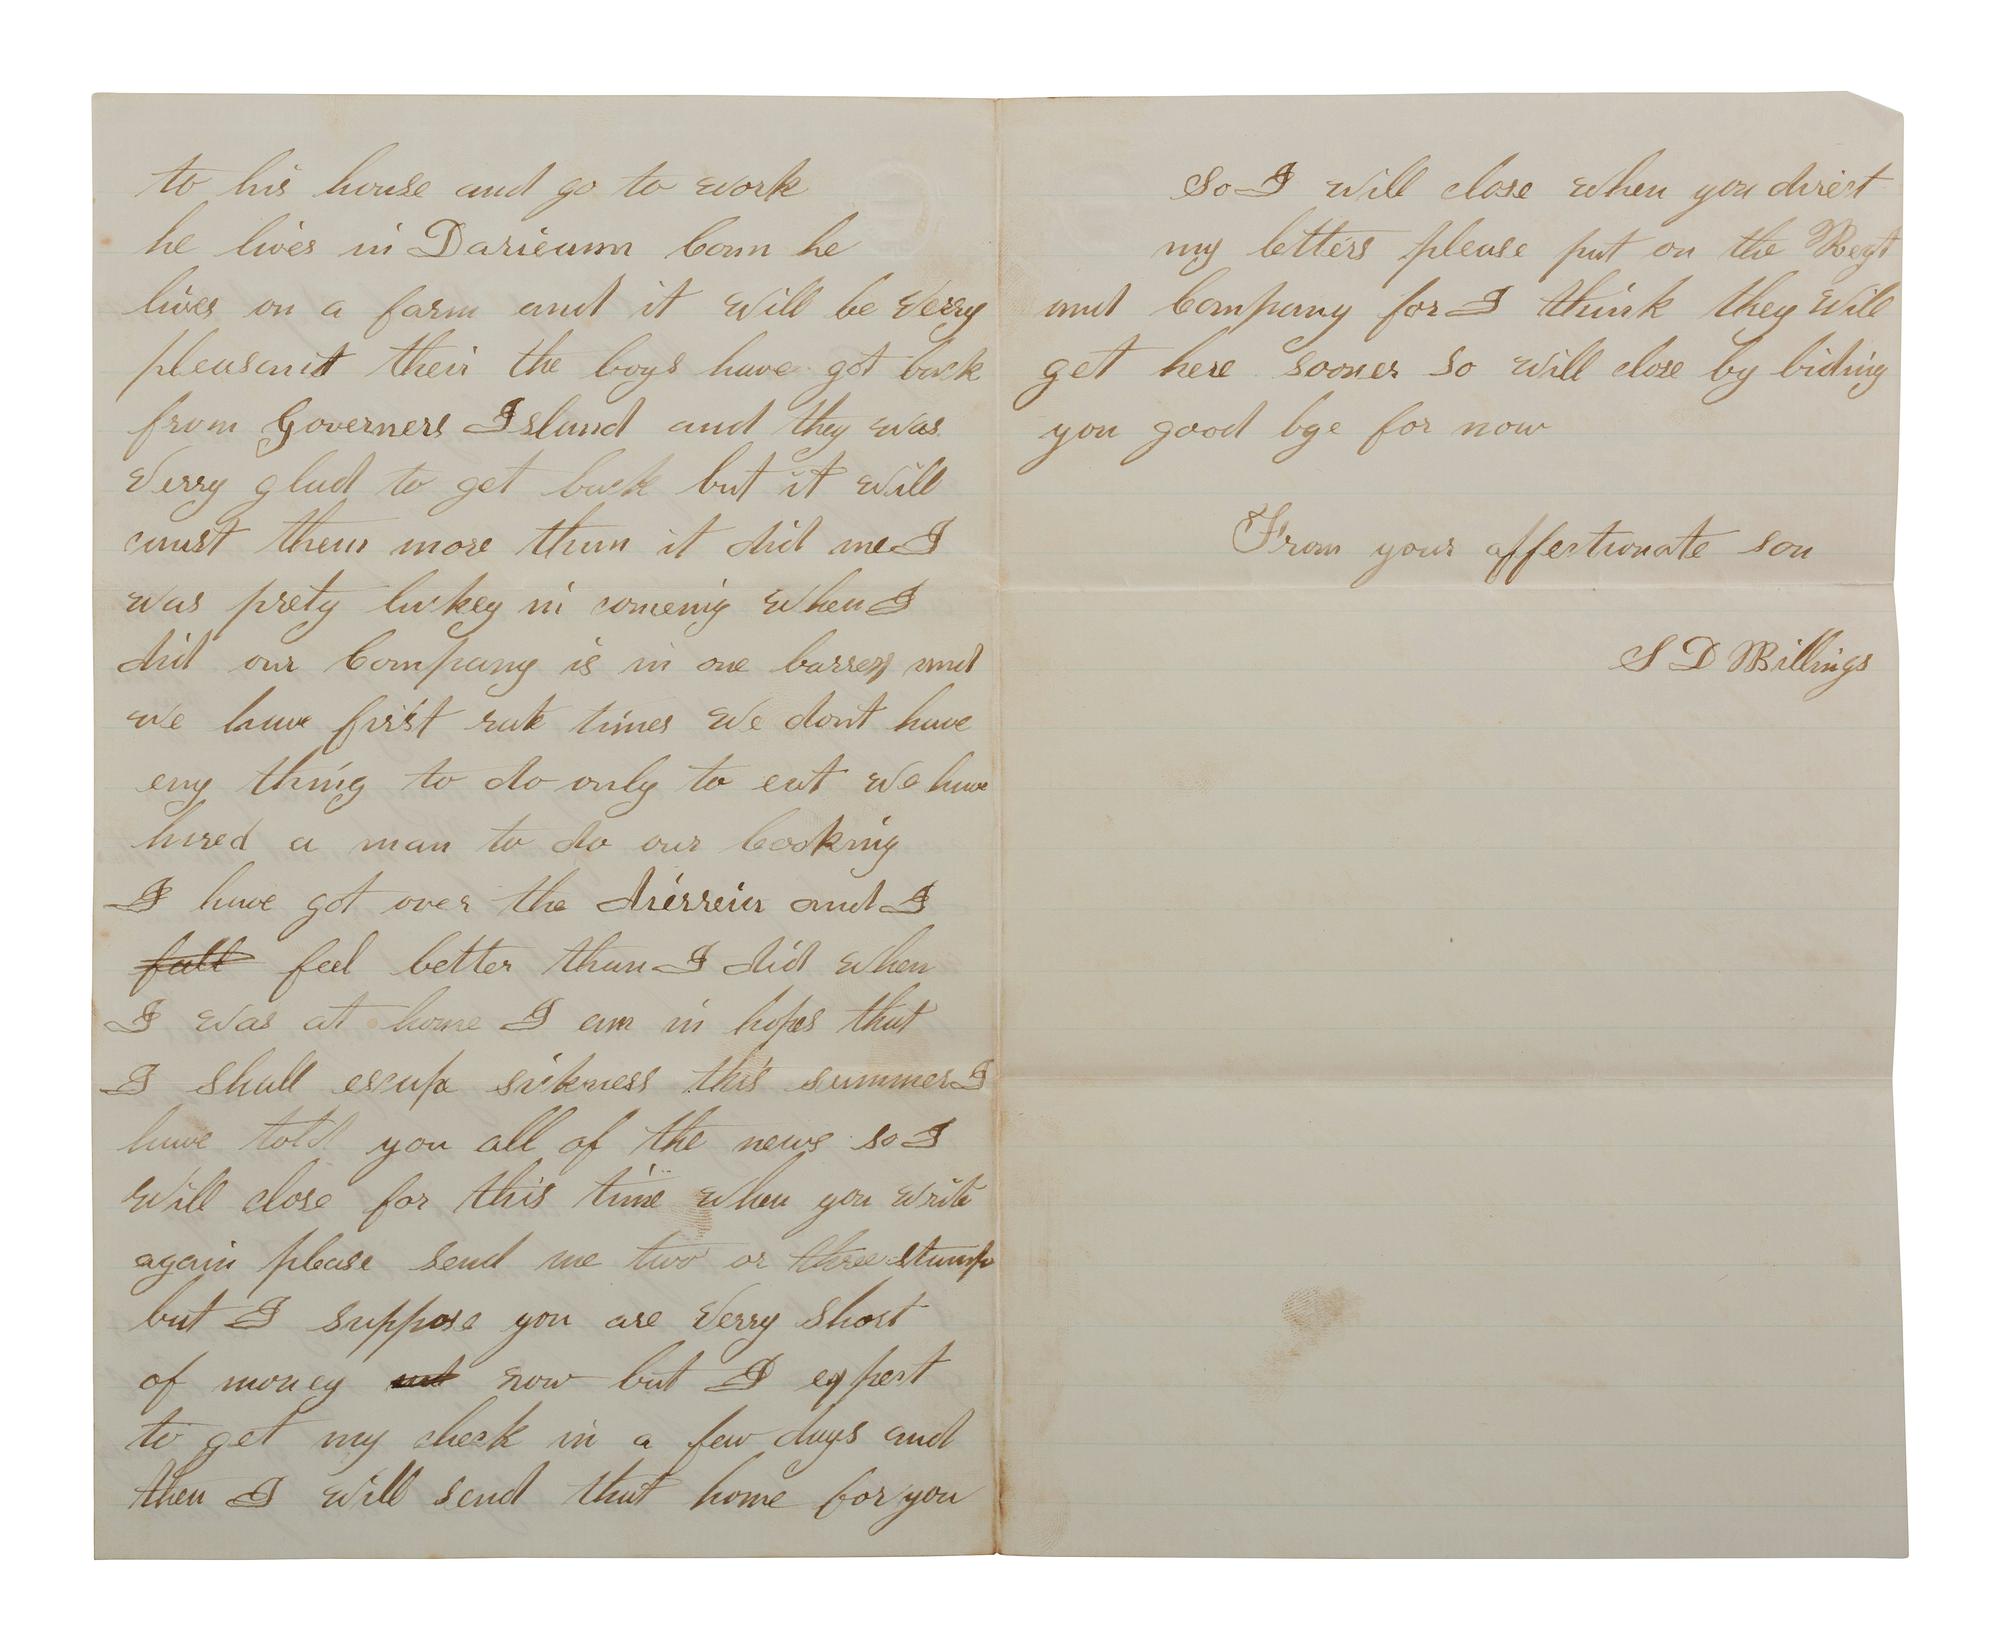 to his house and go to work
he lives in Darieunn Conn he
lives on a farm and it will be verry
pleasant their the boys have got back
from Governers Island and they was
verry glad to get back but it will
coust them more than it did me I
was prety luckey in comeing when I
did our Company is in one barren and
we have first rate times we dont have
eny thing to do only to eat we have
hired a man to do our Cooking
I have got over the and I
fall feel better than I did when
I was at home I am in hopes that
I shall escape sickness this summer I
have told you all of the news so I
will close for this time when you write
again please send me two or three stamp
but I suppose you are verry short
of money now but I expect
to get my check in a few days and
then I will send that home for you
So I will close when you direct
my letters please put on the Regt
and Company for I think they will
get here sooner so will close by biding
you good bye for now
From your affectionate son
S D Billings